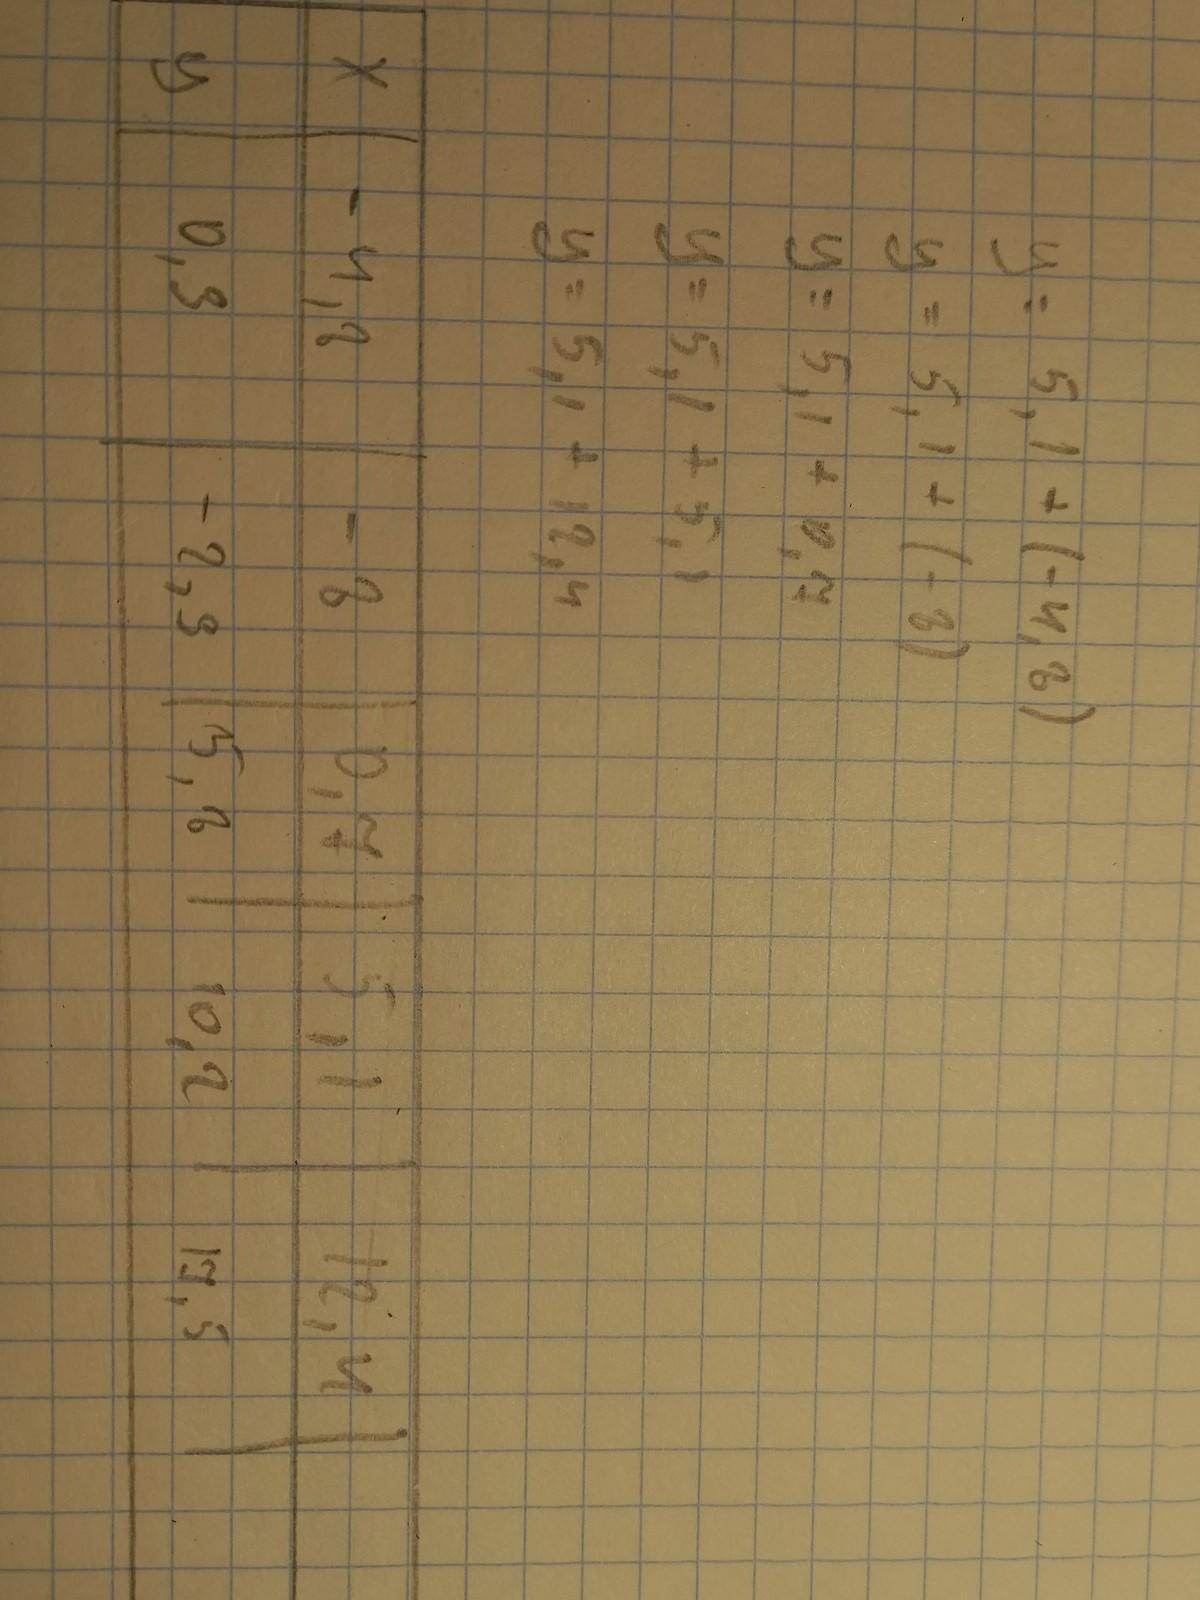 y = 5,1 + (-4,2)
y = 5,1 + (-8)
y = 5,1 + 0,7
y = 5,1 + 5,1
y = 5,1 + 12,4
x -4,2 -8 0,7 5,1 12,4
y 0,9 -2,9 5,8 10,2 17,5